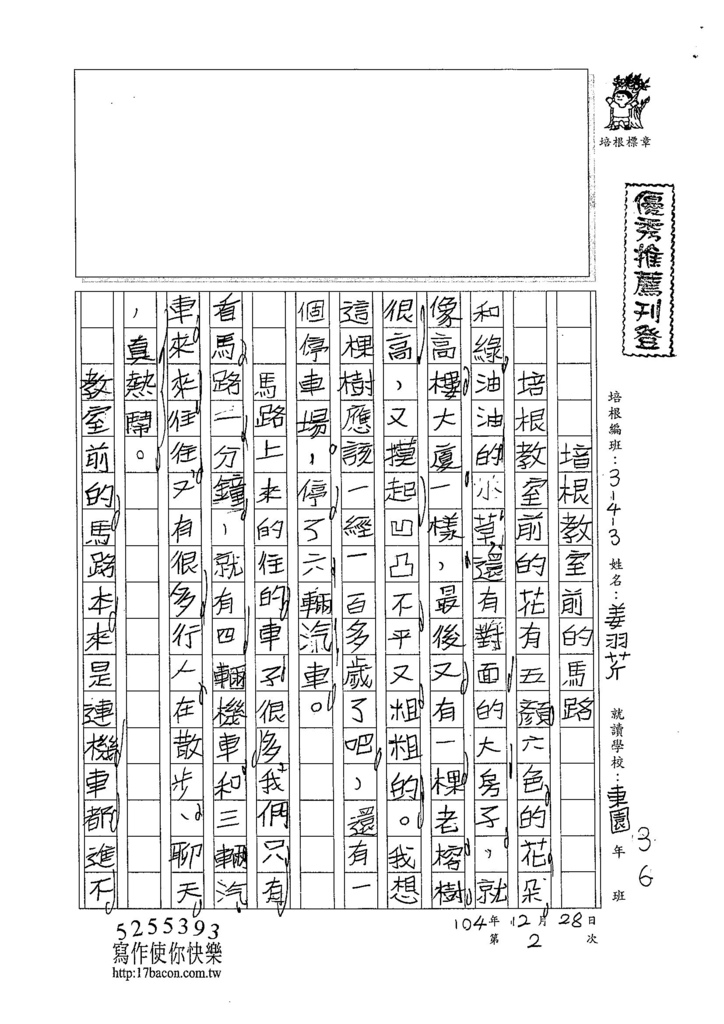 培根標章
優秀推薦刊登
培根編班：3-4-3 姓名：姜羽芹 就讀學校：東園 3年6班
104年12月28日
第2次
培根教室前的馬路
培根教室前的花有五顏六色的花朵
和綠油油的小草，還有對面的大房子，就
像高樓大廈一樣，最後又有一棵老榕樹
很高，又摸起凹凸不平又粗粗的。我想
這棵樹應該一經一百多歲了吧，還有一
個停車場，停了六輛汽車。
馬路上來的往的車子很多我們只有
看馬路一分鐘，就有四輛機車和三輛汽
車來來往往又有很多行人在散步、聊天
，真熱鬧。
教室前的馬路本來是連機車都進不
5255393
寫作使你快樂
http:17bacon.com.tw